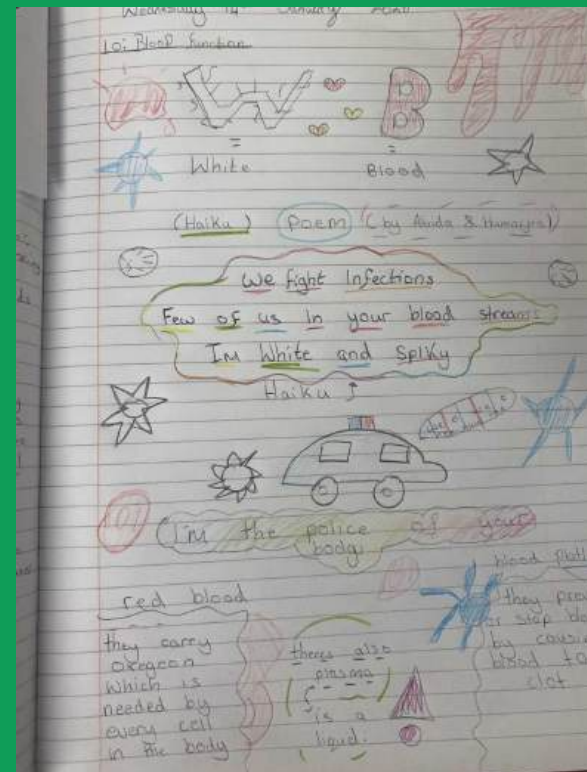 Wednesday 14th January
LO: Blood function
W B
=
=
White
Blood
(Haiku) Poem (by & Humayra)
We fight Infections
Few of us In your blood streams
I'm White and Spiky
Haiku ↑
I'm the police of your
body
red blood
they carry
oxegeon
which is
needed by
every cell
in the body
theres also
plasma
is a
liquid.
blood
they
or stop
by
blood to
clot